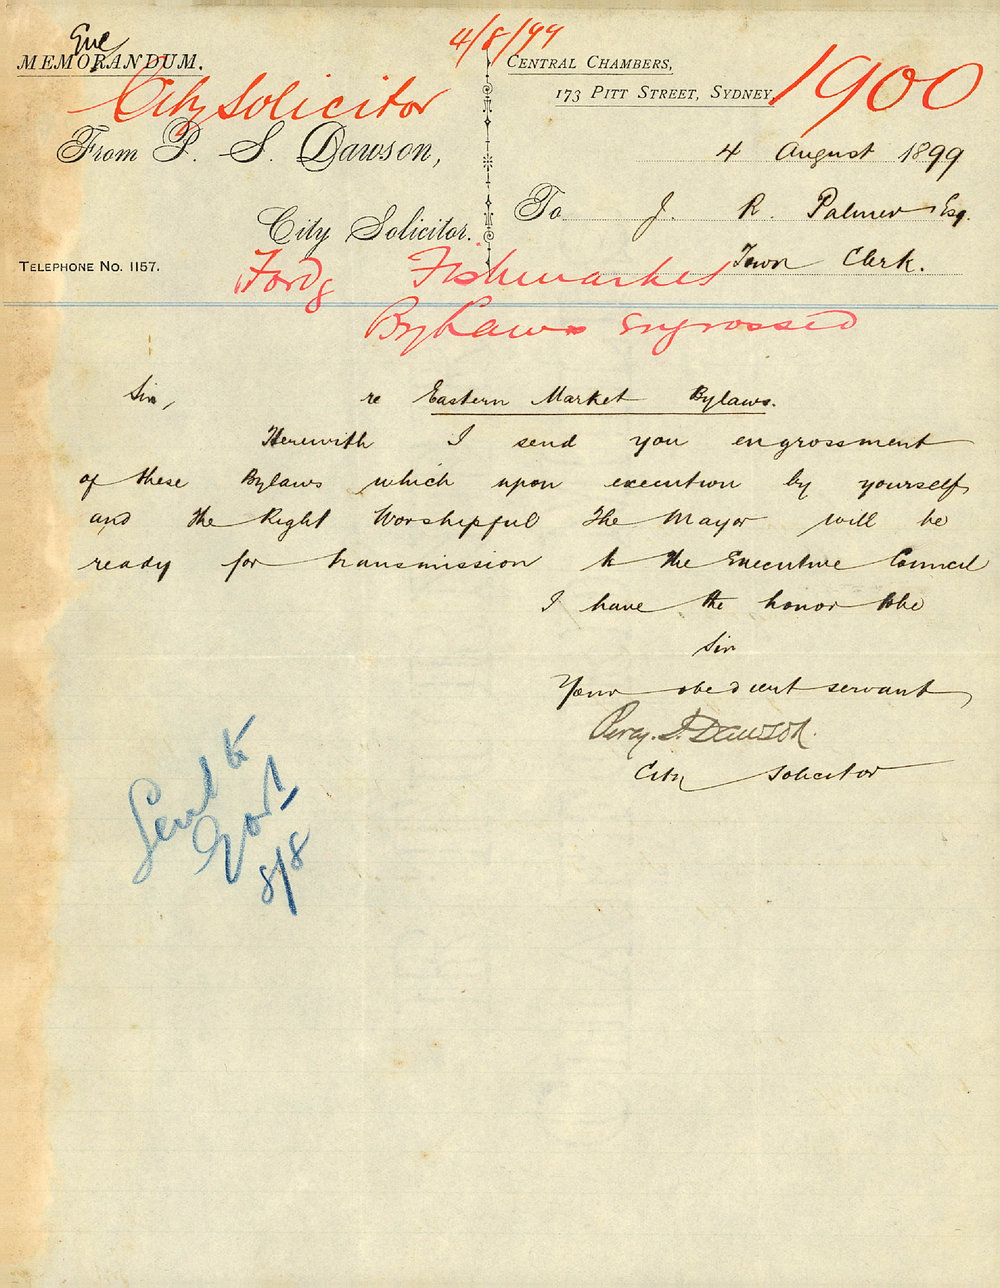 4/8/99
MEMORANDUM.
CENTRAL CHAMBERS,
City Solicitor
173 PITT STREET, SYDNEY,
1900
From P. S. Dawson,
4 August 1899
City Solicitor.
To J. R. Palmer Esq.
TELEPHONE NO. 1157.
Town Clerk.
Fordg Fishmarket
ByLaws Engrossed
Sir,
re Eastern Market Bylaws.
Herewith I send you engrossment
of these Bylaws which upon execution by yourself
and the Right Worshipful the Mayor will be
ready for transmission to the Executive Council
I have the honor to be
Sir
Your obedient servant
Percy. S. Dawson.
City Solicitor
Send to
Govt
8/8